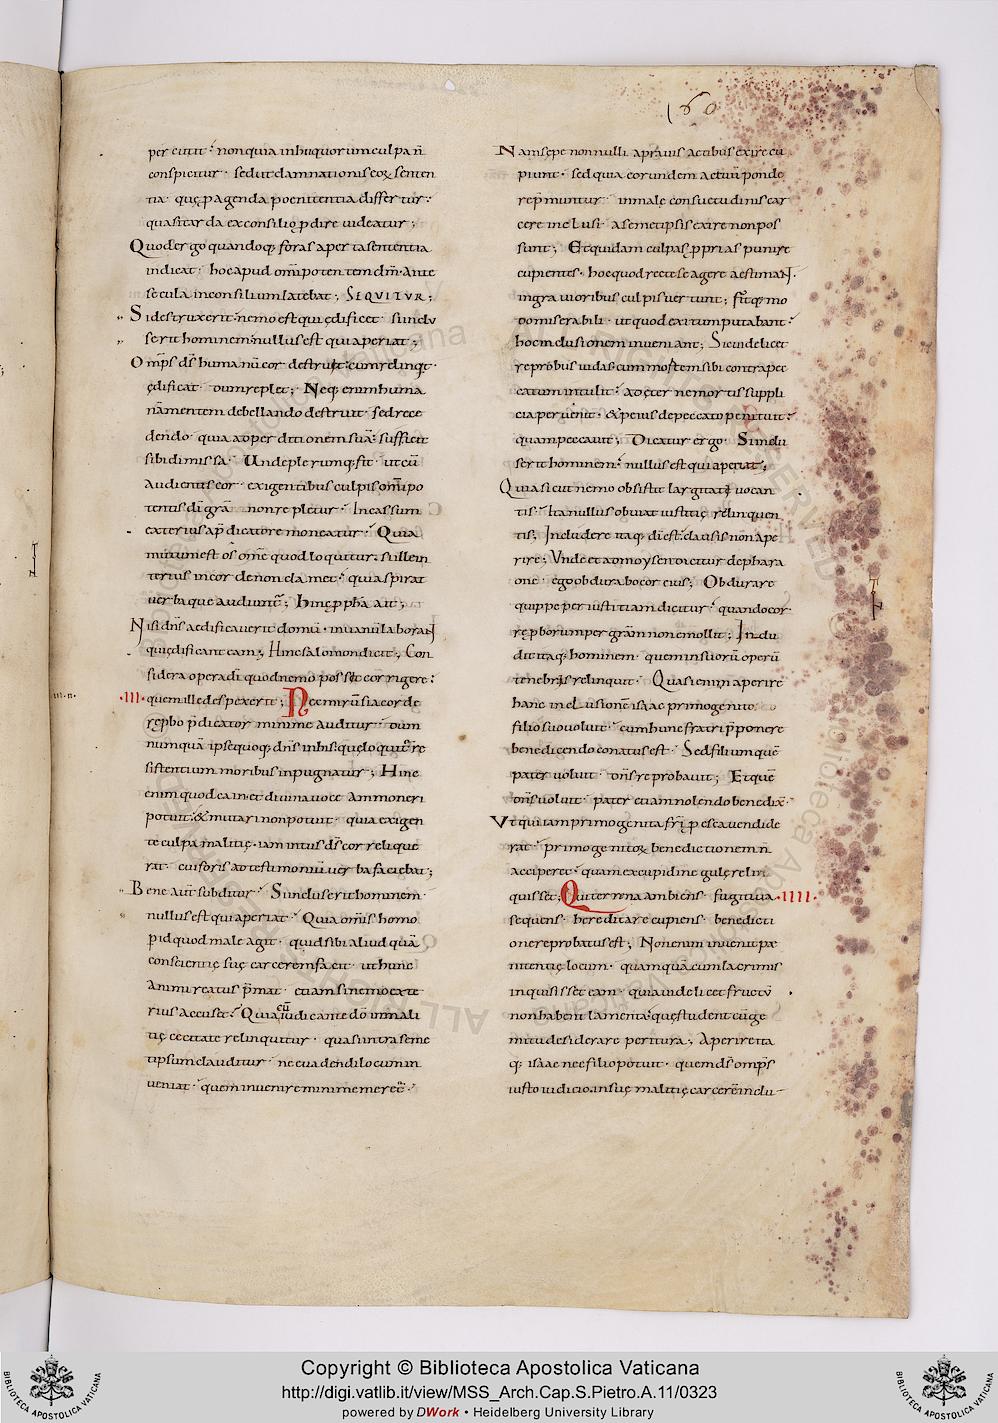 160
percutit · non quia in his quorum culpa n̄
conspicitur · sed ut damnationis eoꝝ senten
tia · quę p agenda poenitentia differtur ·
quasi tarda ex consilio p̱dire videatur ;
Quod ergo quandoq; foras aperta sententia
indicat · hoc apud om̄ipotentem dm̄ · ante
secula in consilium latebat ; SEQUITUR ;
Si destruxerit · nemo est qui ędificet · si inclu
serit hominem · nullus est qui aperiat ;
Omps ds̄ humanū cor destruit · cum relinqt ·
ędificat · dum replet ; Neq; enim huma
nā mentem debellando destruit · sed rece
dendo · quia ad perditionem suā · sufficit
sibi dimissa · Unde plerumq; fit · ut cū
audientis cor · exigentibus culpis om̄ipo
tentis dī grā · non repletur · In cassum
exterius a p̄dicatore moneatur · Quia
mutum est os om̄e quod loquitur · si ille in
terius in corde non clamet · qui aspirat
verba que audiunt̄ ; Hinc p̱pheta ait ;
Nisi dns̄ aedificaverit domū · in vanū laborant
qui ędificant eam ; Hinc salomon dicit ; Con
sidera opera dī quod nemo possit corrigere ·
·III· quem ille despexerit ; Nec mirū si a corde
reprobo p̄dicator minime auditur · dum
numquā ipse quoq; dns̄ in his · quę loquit̄ re
sistentium moribus inpugnatur ; Hinc
enim quod cain · et divina voce ammoneri
potuit · & mutari non potuit · quia exigen
te culpa malitię · iam intus ds̄ cor relique
rat · cui foris ad testimoniū verba faciebat ;
Bene aūt subditur · Si incluserit hominem ·
nullus est qui aperiat · Quia om̄is homo
p id quod male agit · quid sibi aliud quā
conscientię suę carcerem facit · ut hunc
animi reatus p̄mat · etiam si nemo exte
rius accuset · Qui cū iudicante dō in mali
tię cecitate relinquitur · quasi intra seme
tipsum clauditur · ne evadendi locum in
veniat · quem invenire minime meret̄ ·
Nam sepe nonnulli a pravis actibus exire cu
piunt · sed quia eorundem actuū ponde
re p̄muntur · in malę consuetudinis car
cere inclusi · a semetipsis exire non pos
sunt ; Et quidam culpas p̱prias punire
cupientes · hoc quod recte se agere aestimant ·
in gravioribus culpis vertunt ; fitq; mo
do miserabili · ut quod exitum putabant ·
hoc inclusionem inveniant ; Sic videlicet
reprobus iudas cum mortem sibi contra pec
catum intulit · ad ęternę mortis suppli
cia pervenit · & peius de peccato penituit ·
quam peccavit ; Dicatur ergo · Si inclu
serit hominem · nullus est qui aperiat ;
Quia sicut nemo obsistit largitati vocan
tis · ita nullus obviat iustitię relinquen
tis ; Includere itaq; dī est · clausis non ape
rire ; Unde et ad moysen dicitur de phara
one · ego obdurabo cor eius ; Obdurare
quippe per iustitiam dicitur · quando cor ·
reproborum per grām non emollit ; Inclu
dit itaq; hominem · quem in suorū operū
tenebris relinquit · Quasi enim aperire
hanc inclusionē isaac primogenito
filio suo voluit · cum hunc fratri p̄ponere
benedicendo conatus est · Sed filium quē
pater voluit · dns̄ reprobavit ; Et quē
dns̄ voluit · pater etiam nolendo benedix̄ ·
Ut qui iam primogenita fri p esca vendide
rat · primogenitoꝝ benedictionem n̄
acciperet · quam ex cupidine gulę reli
quisset ; Qui terrena ambiens · fugitiva ·IIII·
sequens · hereditare cupiens · benedicti
one reprobatus est ; Non enim invenit pę
nitentię locum · quamquā cum lacrimis
inquisisset eam · quia videlicet fructū
non habent lamenta · quę student cū ge
mitu desiderare peritura ; Aperire ita
q; isaac nec filio potuit · quem ds̄ omps
iusto iudicio in suę malitię carcerē inclu-
Copyright © Biblioteca Apostolica Vaticana
http://digi.vatlib.it/view/MSS_Arch.Cap.S.Pietro.A.11/0323
powered by DWork • Heidelberg University Library
BIBLIOTECA APOSTOLICA VATICANA
BIBLIOTECA APOSTOLICA VATICANA